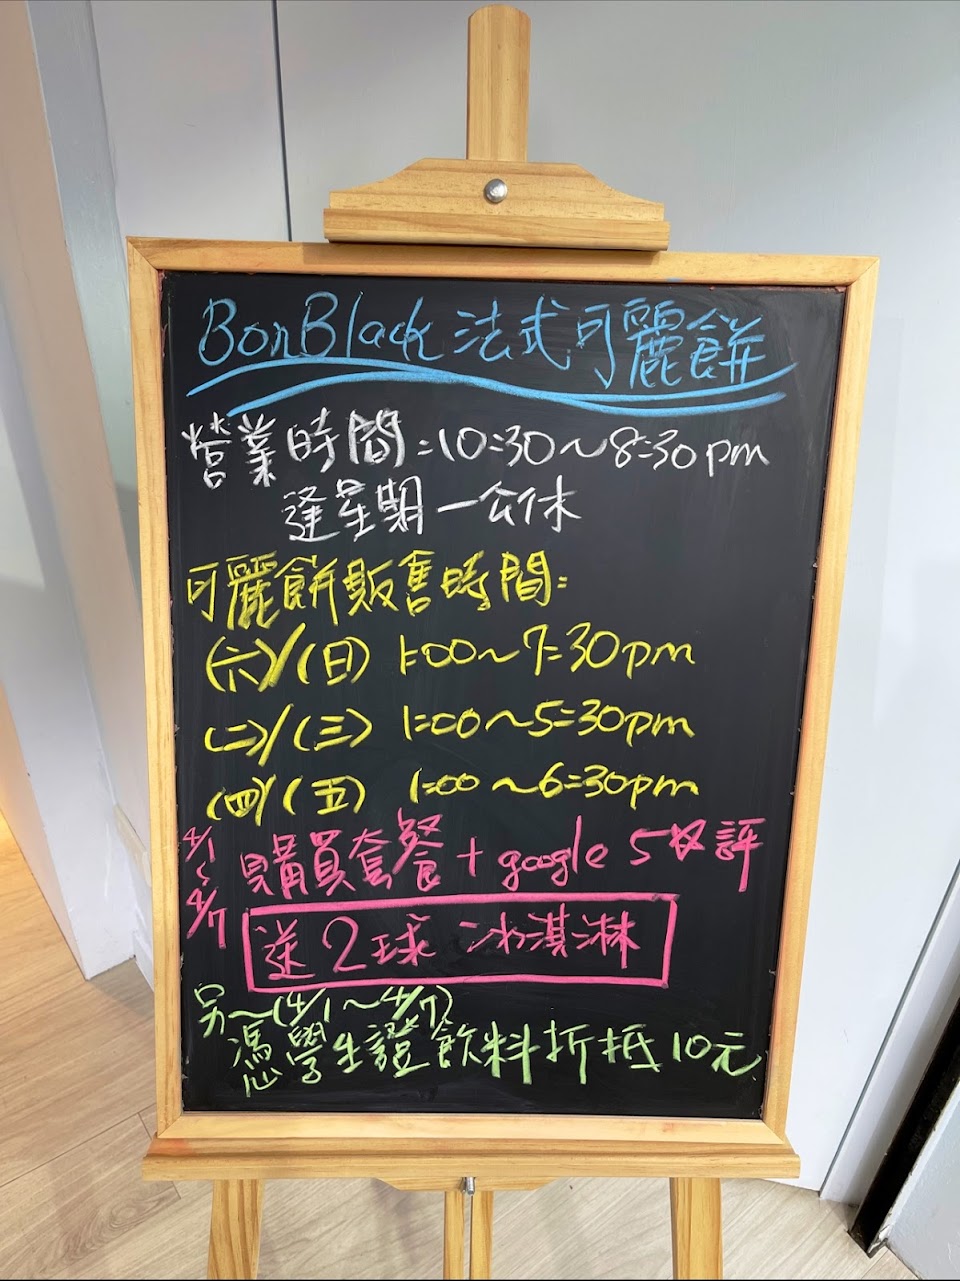 BonBlack 法式可麗餅
營業時間:10:30～8:30pm
逢星期一公休
可麗餅販售時間:
(六)/(日) 1:00～7:30pm
(二)/(三) 1:00～5:30pm
(四)/(五) 1:00～6:30pm
4/1～4/7 購買套餐+google 5☆評
送2球冰淇淋
另～(4/1～4/7)
憑學生證飲料折抵10元